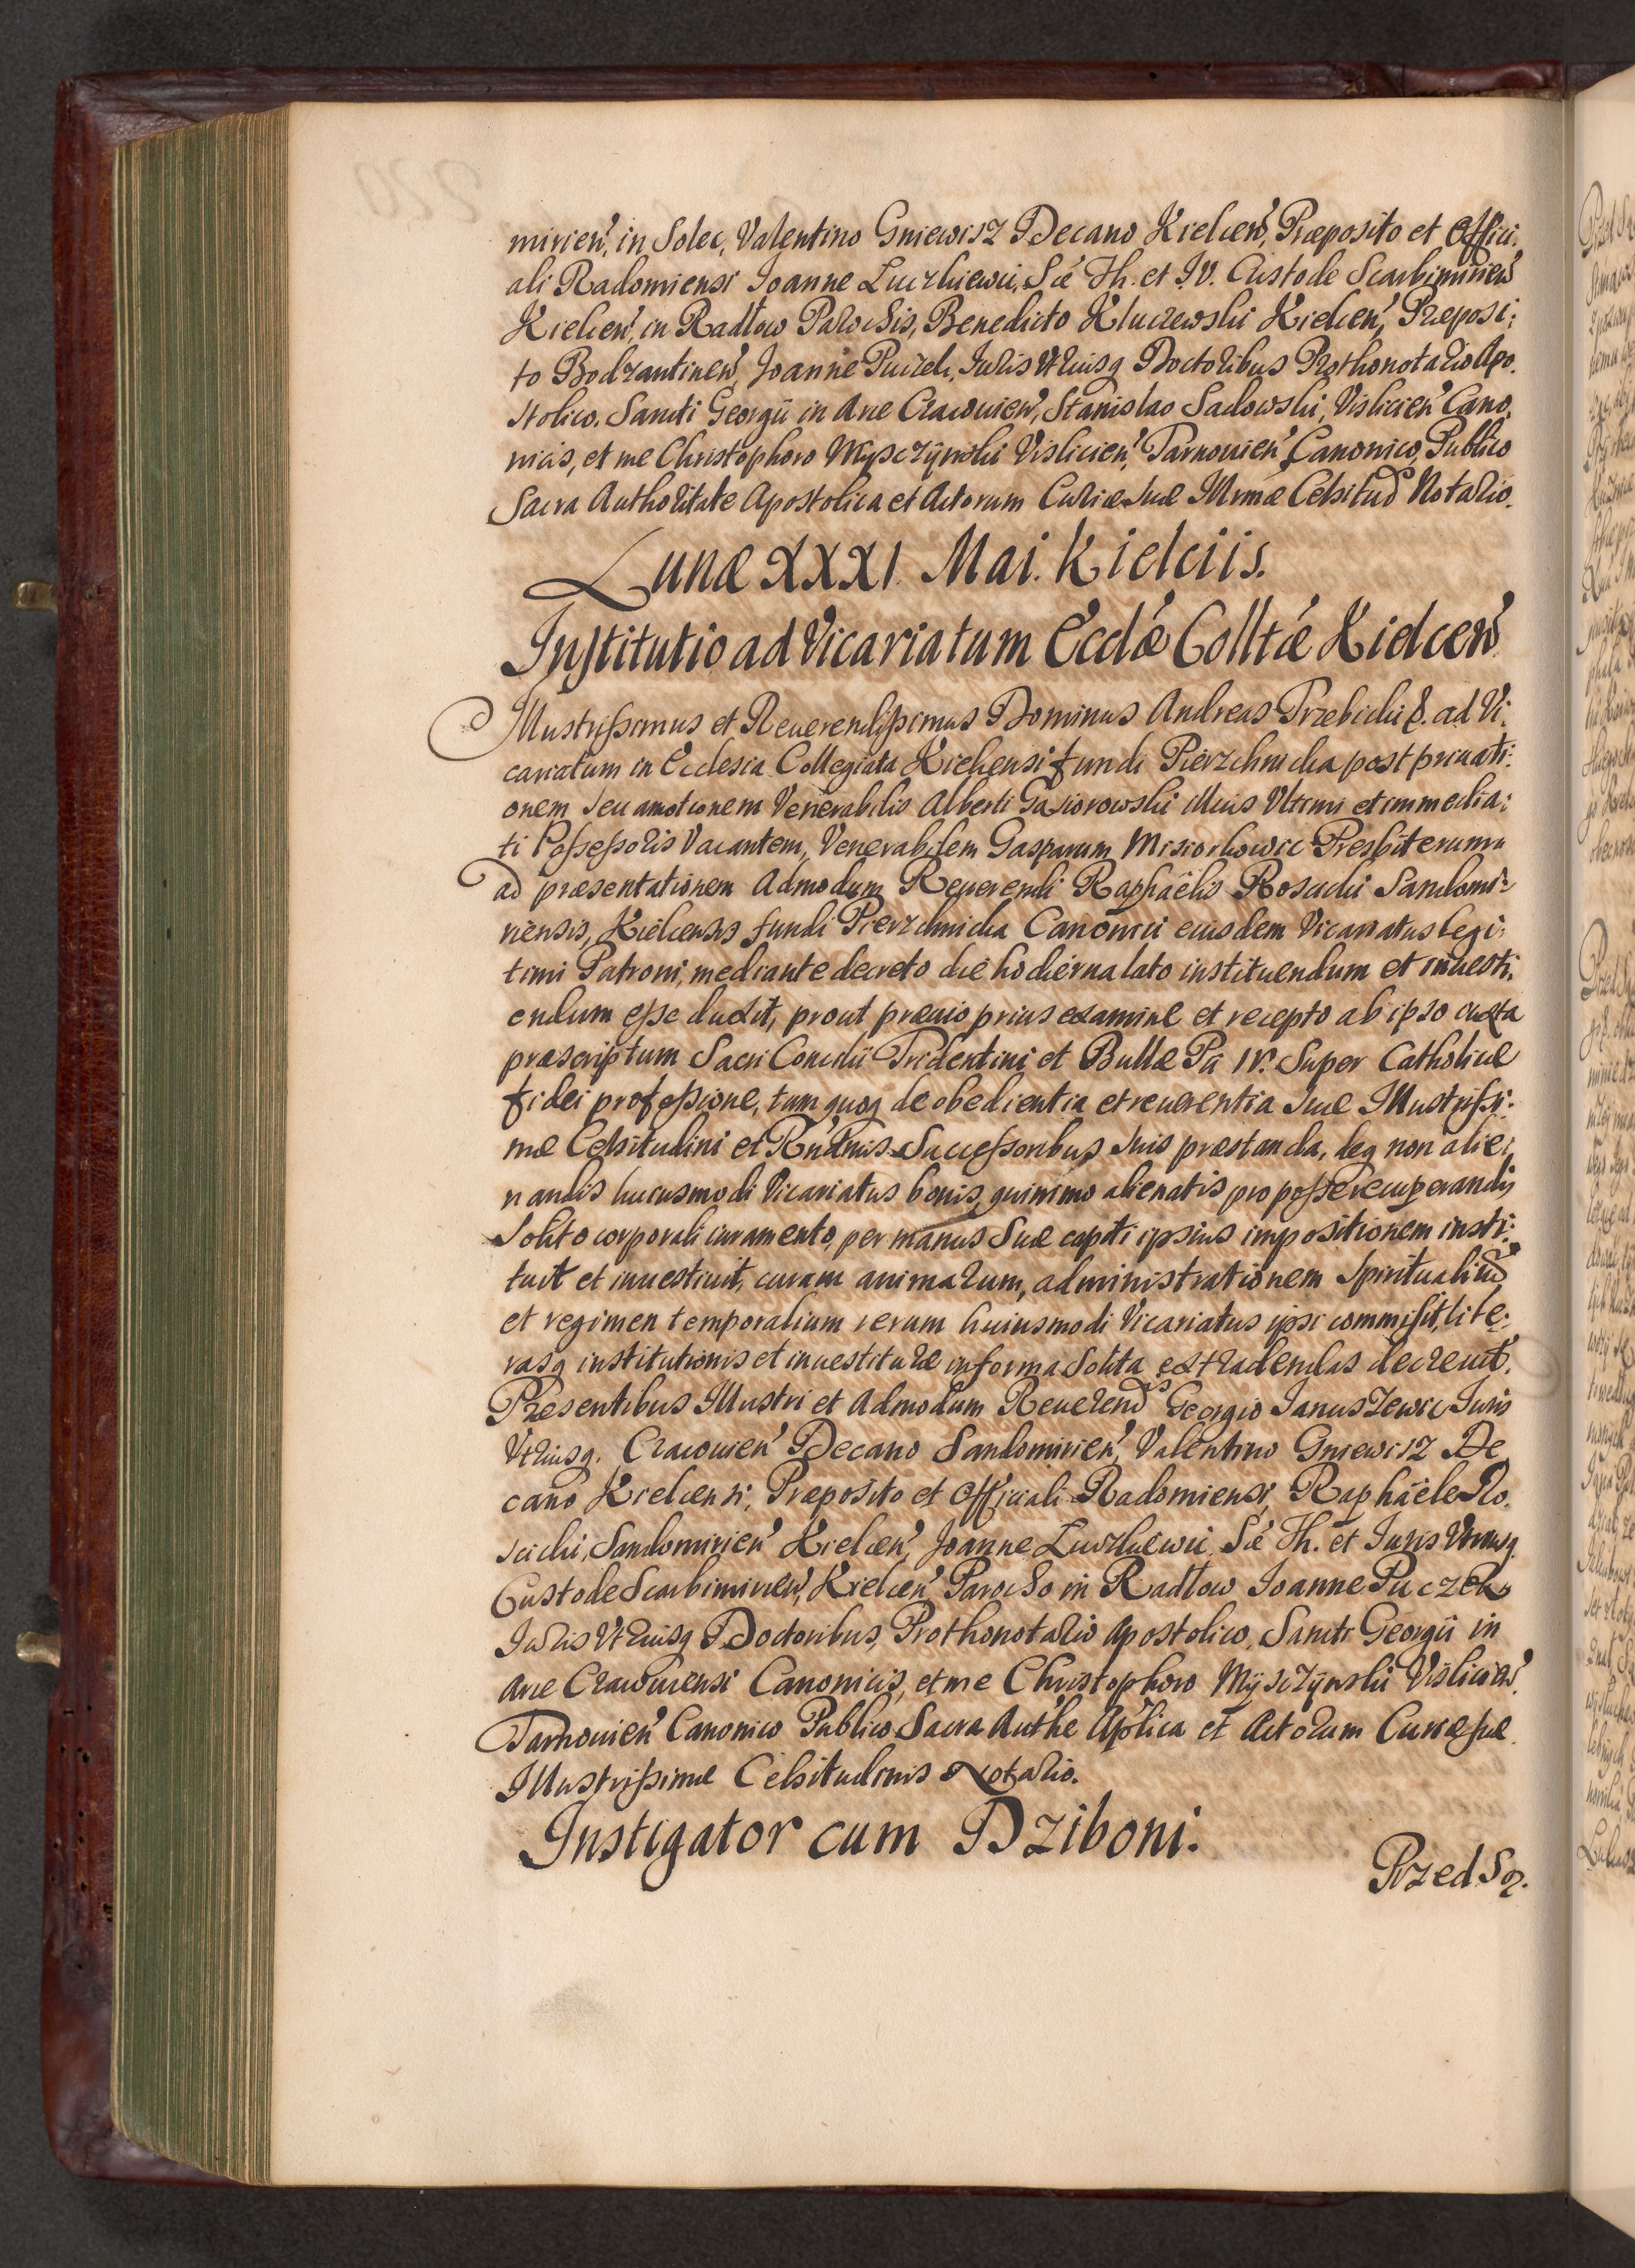 mirień, in Solec, Valentino Gniewisz Decano Kielceń, Præposito et Offici:
ali Radomiensi Joanne Luczkiewic, S̃c Th. et I.V. Custode Scarbimirień
Kielceń, in Radłow Parochis, Benedicto Kluczewski Kielceń, Præposi:
to Bodzantineń, Joanne Puczek, Juris Utriusq Doctoribus Prothonotario Apo.
stolico, Sancti Georgii in Arce Cracovień, Stanislao Sadowski, Vislicień Cano.
nicis, et me Christophoro Mysczÿnski Vislicień, Tarnovień Canonico, Publico
Sacra Authoritate Apostolica et Actorum Curiæ suæ Illmæ Celsitud Notario.
Lunæ XXXI. Mai. Kielciis.
Institutio ad Vicariatum Eccłæ Colltæ Kielceń
Illustrissimus et Reverendissimus Dominus Andreas Trzebicki &. ad Vi.
cariatum in Ecclesia Collegiata Kielcensi fundi Pierzchnicka post privati:
onem seu amotionem Venerabilis Alberti Gasiorowski illius Ultimi et immedia:
ti Possessoris Vacantem, Venerabilem Gasparum Misiorkowic Presbiterum
ad præsentationem Admodum Reverendi Raphaëlis Roscicki Sandomi:
riensis, Kielcensis fundi Pierzchnicka Canonici eiusdem Vicariatus legi:
timi Patroni, mediante decreto die hodierna lato instituendum et investi.
endum esse duxit, prout prævio prius examine et recepto ab ipso iuxta
præscriptum Sacri Concilii Tridentini et Bullæ Pii IV. Super Catholicæ
fidei professione, tum quoq de obedientia et reverentia suæ Illustrissi:
mæ Celsitudini et Rndmis Successoribus suis præstanda, deq non alie:
nandis huiusmodi Vicariatus bonis, quinimo alienatis pro posse recuperandis
Solito corporali iuramento, per manus Suæ capiti ipsius impositionem insti:
tuit et investivit, curam animarum, administrationem Spiritualiũ
et regimen temporalium rerum huiusmodi Vicariatus ipsi commisit, lite:
rasq institutionis et investituræ in forma solita extradendas decrevit.
Præsentibus Illustri et Admodum Reverendis Georgio Januszewic Juris
Utriusq. Cracovień Decano Sandomirień, Valentino Gniewisz De
cano Kielcensi, Præposito et Officiali Radomiensi, Raphaële Ro.
scicki, Sandomirień Kielceń, Joanne Luczkiewic, S̃c Th. et Juris Utriusq.
Custode Scarbimirień, Kielceń Parocho in Radłow Joanne Puczek
Juris Utriusq Doctoribus, Prothonotario Apostolico, Sancti Georgii in
Arce Cracoviensi Canonicis, et me Christophoro Mÿsczÿnski Vislicień.
Tarnovień Canonico Publico Sacra Authe Aplica et Actorum Curiæ suæ
Illustrissimæ Celsitudinis Notario.
Instigator cum Dziboni.
Przed Są.